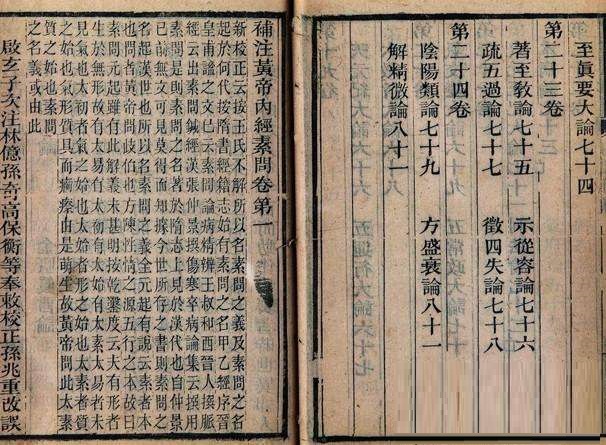 至眞要大論七十四
第二十三卷
著至教論七十五　示從容論七十六
疏五過論七十七　徵四失論七十八
第二十四卷
陰陽類論七十九　方盛衰論八十一
解精微論八十一
補注黃帝內經素問卷第一
新校正云按王氏不解所以名素問之義及素問之名
起於何代按隋書經籍志始有素問之名甲乙經序晉
皇甫謐之文已云素問論病精辨王叔和西晉人撰脈
經云出素問鍼經漢張仲景撰傷寒卒病論集云撰用
素問是則素問之名著於隋志上見於漢代也自仲景
已前無文可見莫得而知據今世所存之書則素問之
名起漢世也所以名素問之義全元起有說云素者本
也問者黃帝問岐伯也方陳性情之源五行之本故曰
素問元起雖有此解義未甚明按乾鑿度云夫有形者
生於無形故有太易有太初有太始有太素太易者未
見氣也太初者氣之始也太始者形之始也太素者質
之始也氣形質具而痾瘵由是萌生故黃帝問此太素
質之始也素問
之名義或由此
啟玄子次注林億孫奇高保衡等奉敕校正孫兆重改誤